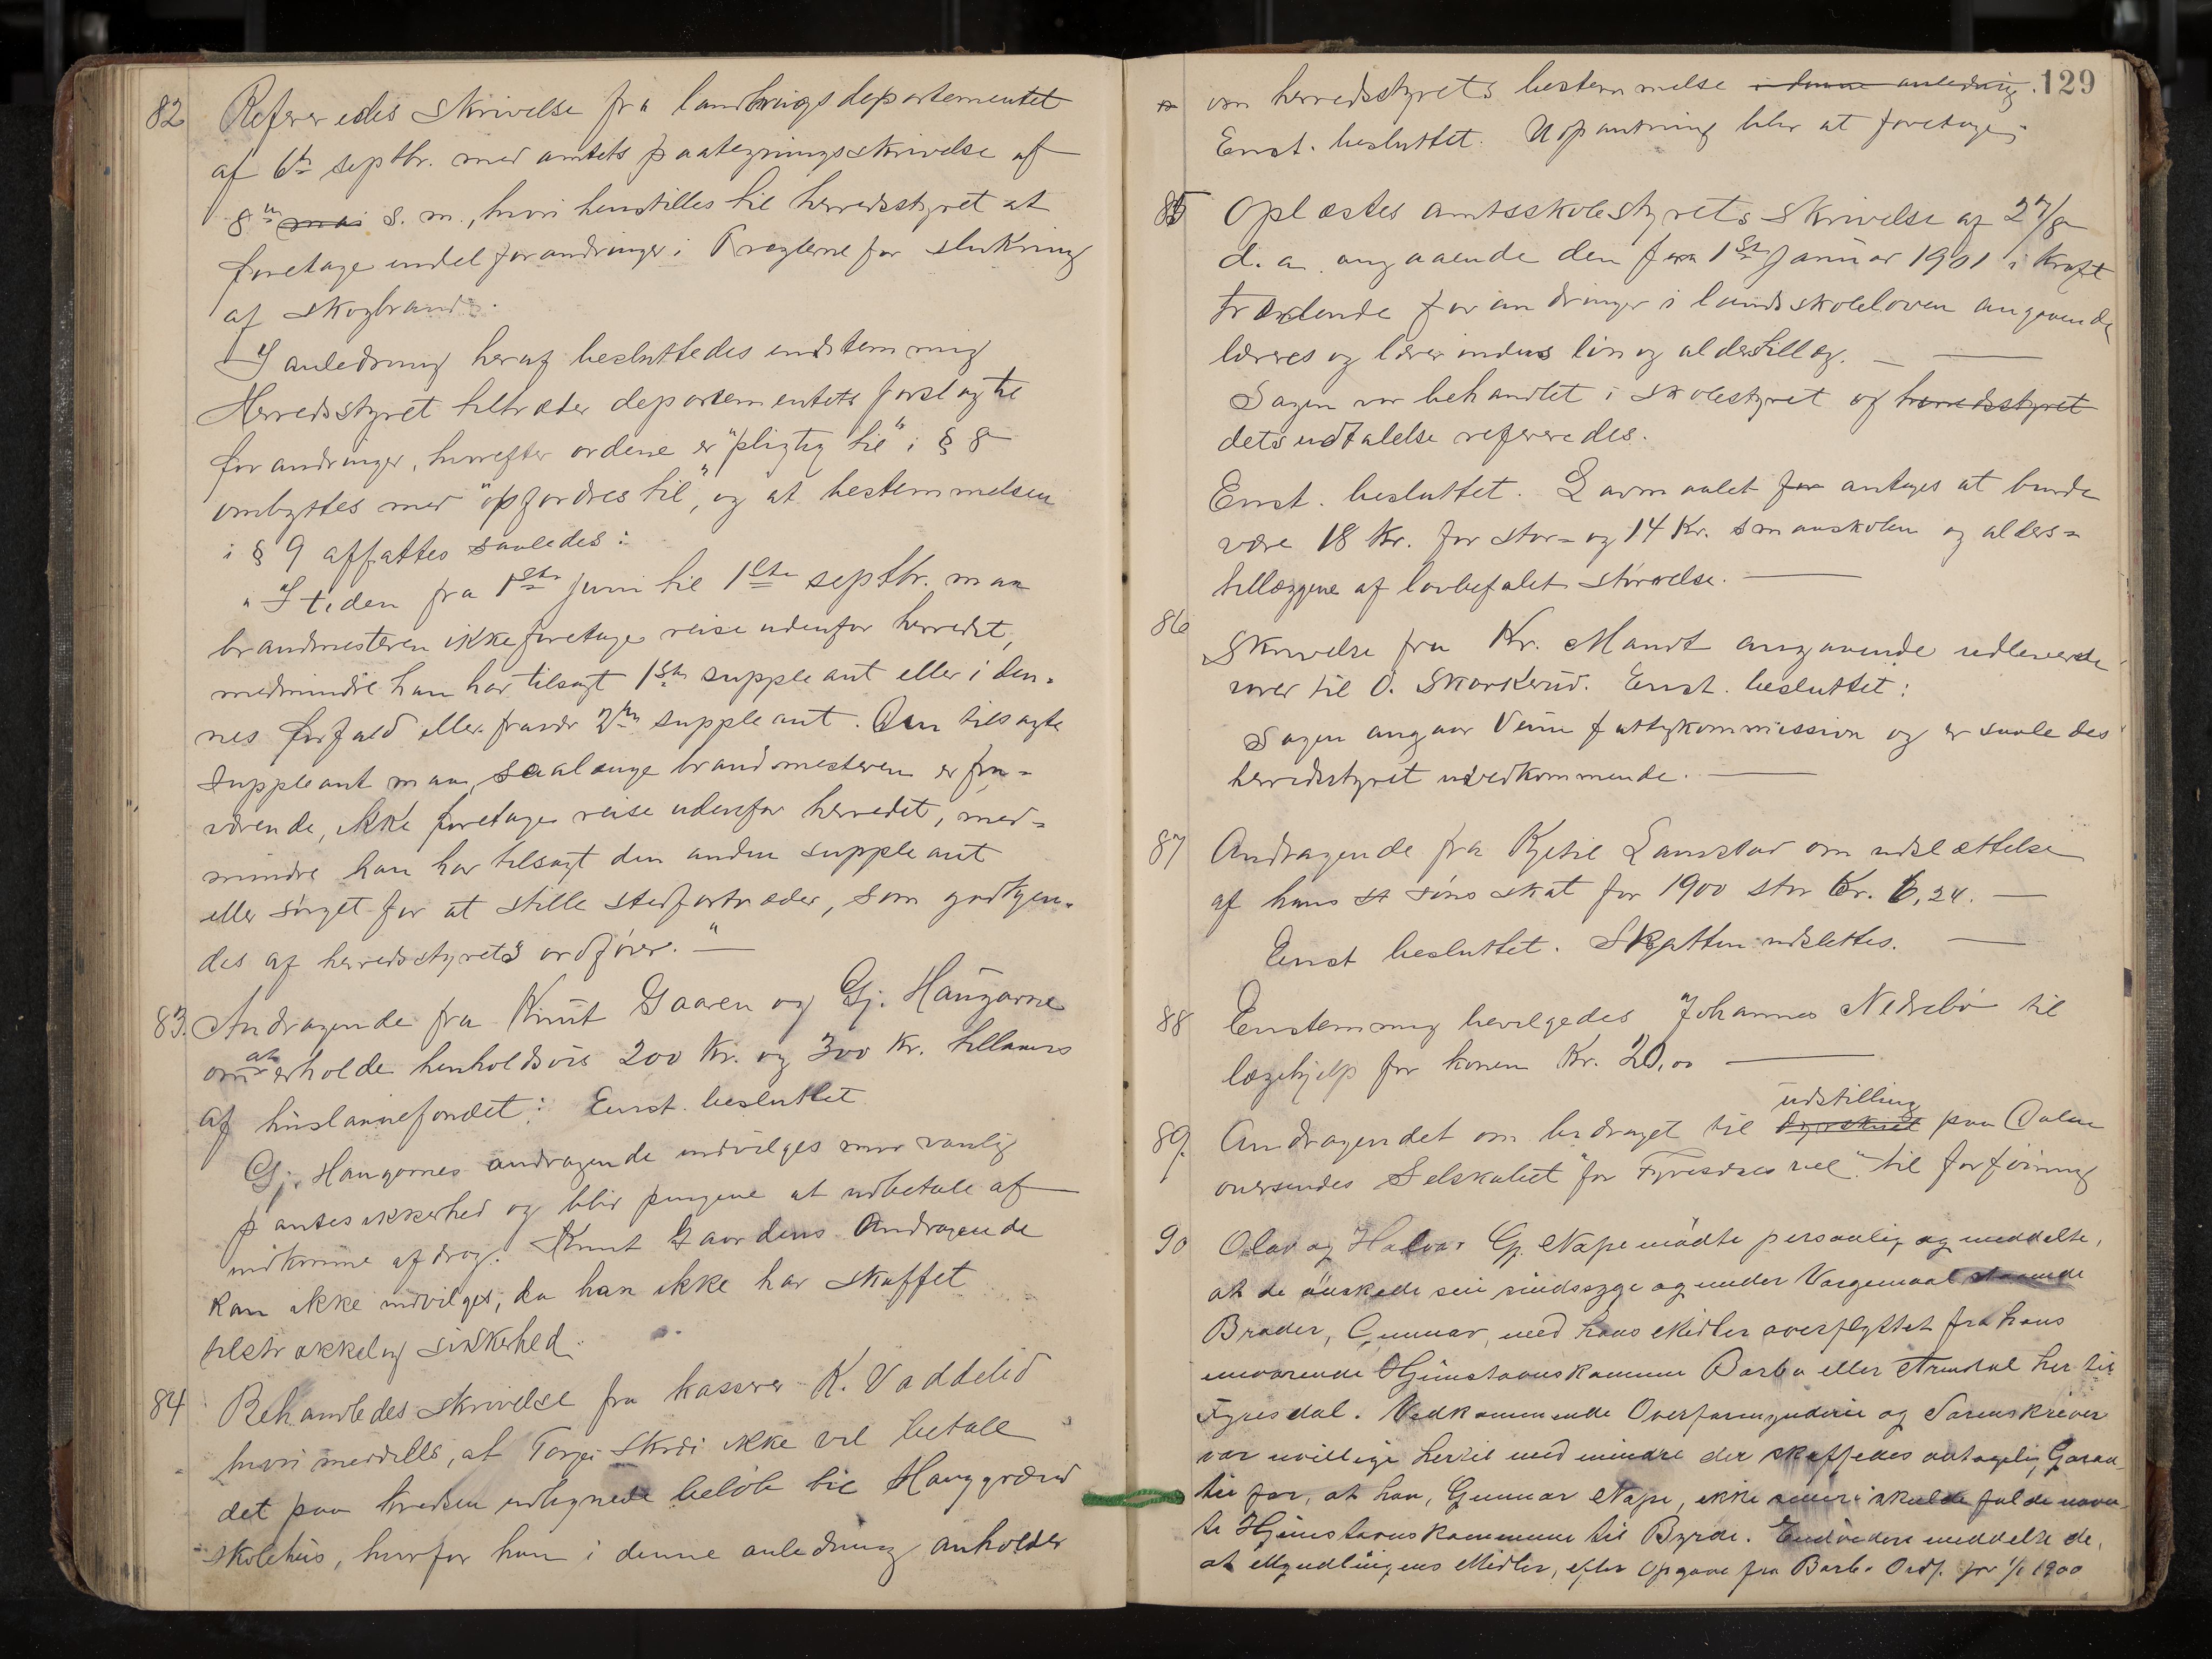 82 Refereredes skrivelse fra landbrugsdepartementet
af 6te septbr. med amtets paategningsskrivelse af
8de mai s. m., hvori henstilles til herredsstyret at
foretage endel forandringer i reglerne for slukning
af skogbrand.
I anledning heraf besluttedes enstemmig
Herredsstyret tiltræder departementets forslag til
forandringer, hvorefter ordene er "pligtig til" i § 8
ombyttes med "opfordres til", og at bestemmelsen
i § 9 affattes saaledes:
"I tiden fra 1ste juni til 1ste septbr. maa
brandmesteren ikke foretage reise udenfor herredet,
medmindre han har tilsagt 1ste suppleant eller i den-
nes forfald eller fravær 2den suppleant. Den tilsagte
suppleant maa, saalænge brandmesteren er fra-
værende, ikke foretage reise udenfor herredet, med-
mindre han har tilsagt den anden suppleant
eller sørget for at stille stedfortræder, som godkjen-
des af herredsstyrets ordfører." —
83. Andragende fra Knut Gaaren og Gj. Haugarne
om at erholde henholdsvis 200 Kr. og 300 Kr. tillaans
af huslaanefondet: Enst. besluttet
Gj. Haugarnes andragende indvilges mod vanlig
pantesikkerhed og blir pengene at udbetale af
indkomne afdrag. Knut Gaardens Andragende
kan ikke indvilges, da han ikke har skaffet
tilstrækkelig sikkerhed.
84 Behandledes skrivelse fra kasserer K. Vaddelid
hvori meddeles, at Torgei Skrei ikke vil betale
det paa kredsen udlignede beløb til Hauggrænd
skolehus, hvorfor han i denne anledning anholder
129
om herredsstyrets bestemmelse i denne anledning.
Enst. besluttet. Udpantning blir at foretage.
85 Oplæstes amtsskolestyrets skrivelse af 27/8
d. a. angaaende den fra 1ste Januar 1901 i kraft
trædende forandringer i landsskoleloven angaaende
læreres og lærerinders løn og alderstillæg. —
Sagen var behandlet i skolestyret og herredsstyret
dets udtalelse refereredes.
Enst. besluttet. Lønmaalet for antages at burde
være 18 kr. for stor- og 14 Kr. smaaskolen og alders-
tillæggene af lovbefalet størrelse. —
86 Skrivelse fra Kr. Mandt angaaende udleverede
varer til O. Skarkerud. Enst. besluttet:
Sagen angaar Veum fattigkommission og er saaledes
herredsstyret uvedkommende. —
87 Andragende fra Kjetil Lamstad om udslettelse
af hans st søns skat for 1900 stor Kr. 6,24. —
Enst besluttet. Skatten udslettes. —
88 Enstemmig bevilgedes Johannes Nedrebø til
lægehjelp for konen Kr. 20,00 —
89. Andragendet om bidraget til dyrskuet udstilling paa Dalen
oversendes Selskabet "for Fyresdals vel" til forføining
90 Olav og Halvor Gj. Nape mødte personlig og meddelte,
at de ønskede sin sindssyge og under Værgemaal staaende
Broder, Gunnar, med hans Midler overflyttet fra hans
nuværende Hjemstavnskommune Barbu eller Arendal her til
Fyresdal. Vedkommende Overformynderie og Sorenskriver
var uvillige hertil med mindre der skaffedes antagelig Garan-
tie for, at han, Gunnar Nape, ikke senere skulde falde nævn-
te Hjemstavnskommune til Byrde. Endvidere meddelte de,
at Myndlingens Midler, efter Opgave fra Barbu Ordf. pr 1/1 1900